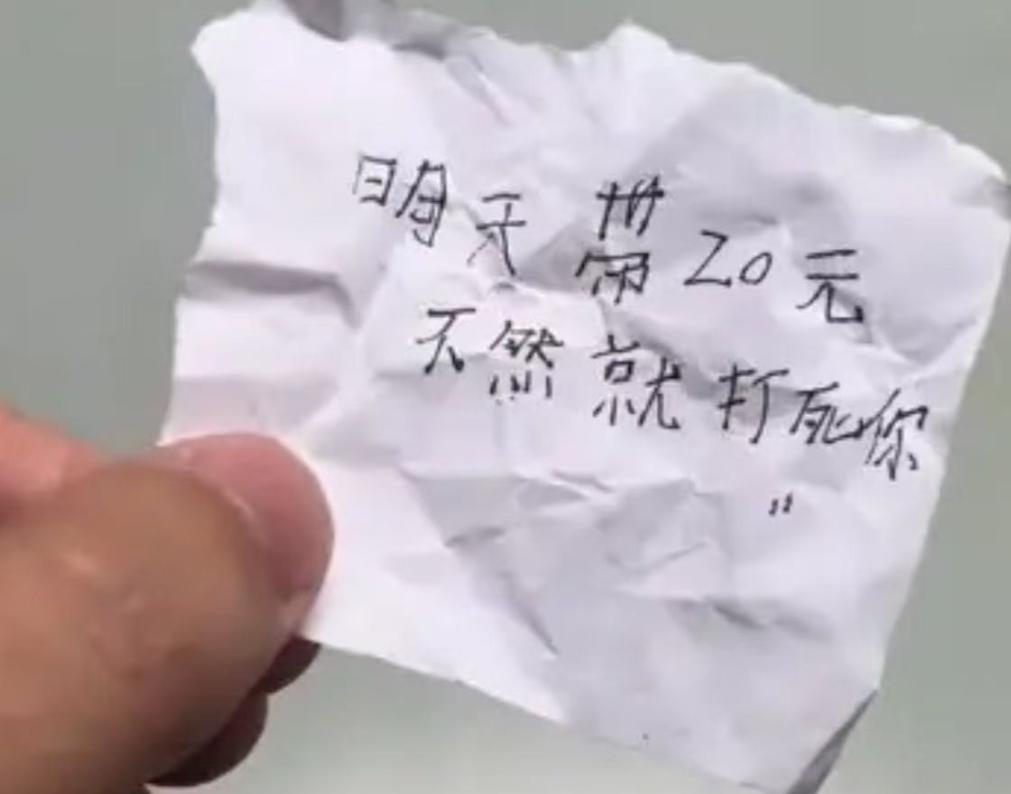 明天带20元
不然就打死你
"